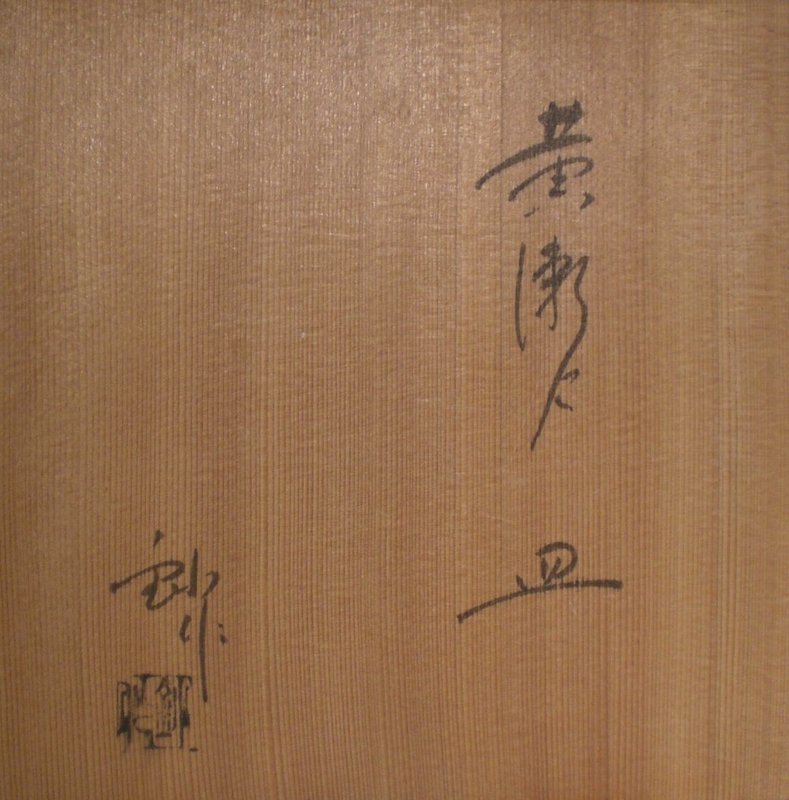 黄瀬戸
皿
作